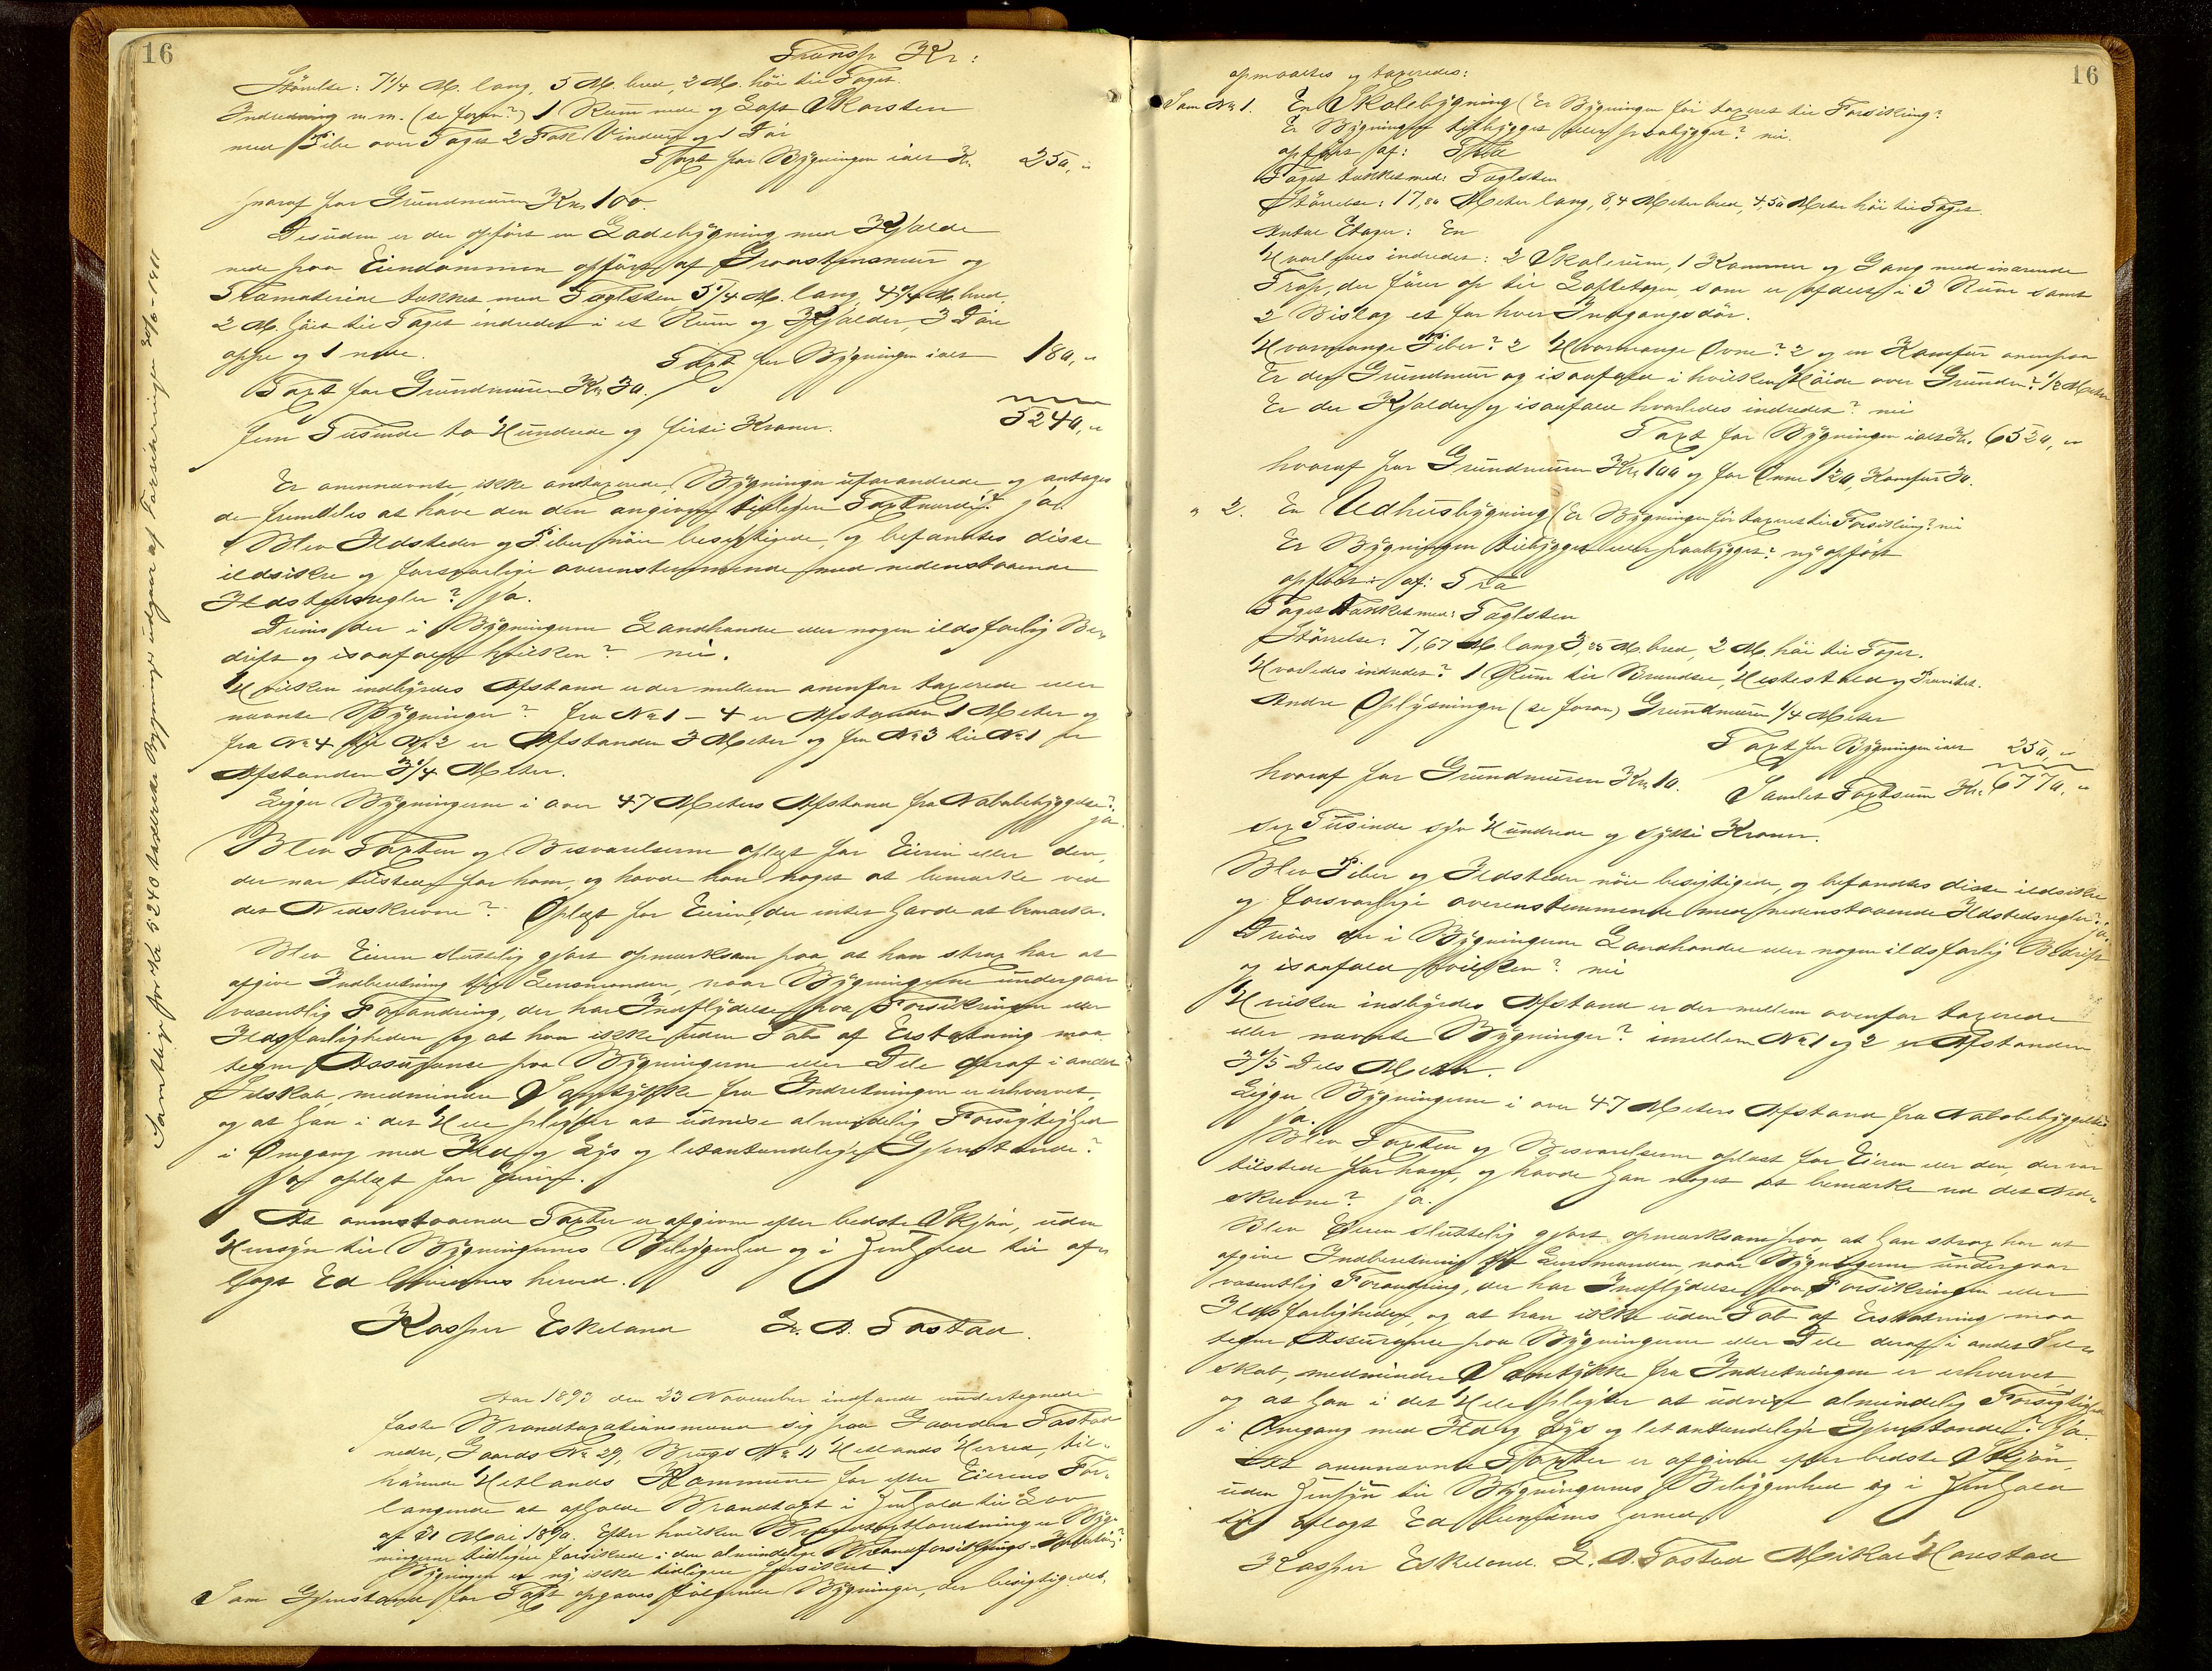 16
Transp. Kr:
Størrelse: 7 1/4 M. lang, 5 M. bred, 2 M. høi til Taget.
Indredning m.m. (se foran?) 1 Rum nede og Loft Skorsten
med Pibe over Taget 2 Fag Vinduer og 1 Dør
Taxt for Bygningen ialt Kr. 250,"
hvoraf for Grundmuren Kr. 100.
Desuden er der opført en Ladebygning med Kjælder
nede paa Eiendommen opført af Graastensmur og
Træmateriale tækket med Taglsten 5 1/4 M. lang, 4 3/4 M. bred,
2 M. høit til Taget indredet i et Rum og Kjælder, 3 Døre
oppe og 1 nede. Taxt for Bygningen ialt 180,"
Taxt for Grundmuren Kr. 30.
5240,"
fem Tusinde to Hundrede og firti Kroner.
Er ovennævnte, ikke omtaxerede Bygninger uforandrede og antages
de fremdeles at have den dem angivne tidligere Taxtværdi? ja.
Blev Ildsteder og Piber nøie besigtigede, og befandtes disse
ildsikre og forsvarlige overenstemmende med nedenstaaende
Ildstedsregler? Ja.
Drives der i Bygningerne Landhandel eller nogen ildsfarlig Be-
drift og isaafald hvilken? nei.
Hvilken indbyrdes Afstand er der mellem ovenfor taxerede eller
nævnte Bygninger? fra No 1 - 4 er Afstanden 1 Meter og
fra No 4 til No 2 er Afstanden 3 Meter og fra No 3 til No 1 er
Afstanden 3 1/4 Meter.
Ligger Bygningerne i over 47 Meters Afstand fra Nabobebyggelse?
ja.
Blev Taxten og Besvarelserne oplæst for Eieren eller den,
der var tilstede for ham, og havde han noget at bemærke ved
det Nedskrevne? Oplæst for Eieren, der intet havde at bemærke.
Blev Eieren sluttelig gjort opmærksom paa, at han strax har at
afgive Indberetning til Lensmanden, naar Bygningerne undergaar
væsentlig Forandring, der har Indflydelse paa Forsikringen eller
Ildsfarligheden og at han ikke uden Tab af Erstatning maa
tegne Assurance paa Bygningerne eller Dele deraf i andet
Selskab, medmindre Samtykke fra Indretningen er erhvervet,
og at han i det Hele pligter at udvise almindelig Forsigtighed
i Omgang med Ild og Lys og letantændelige Gjenstande?
Ja oplæst for Eieren.
At ovenstaaende Taxter er afgivne efter bedste Skjøn, uden
Hensyn til Bygningernes Beliggenhed og i Henhold til af-
lagt Ed bevidnes herved.
Kasper Eskeland L. A. Tastad.
Aar 1893 den 23 November indfandt undertegnede
faste Brandtaxationsmænd sig paa Gaarden Tastad
nedre, Gaards No 29, Brugs No 11 Hetlands Herred, til-
hørende Hetlands Kommune for efter Eierens For-
langende at afholde Brandtaxt i Henhold til Lov
af 31 Mai 1890. Efter hvilken Brandtaxtforretning er Byg-
ningerne tidligere forsikrede i den almindelige Brandforsikrings-Indretning?
Bygningen er ny ikke tidligere forsikret.
Som Gjenstand for Taxt opgaves følgende Bygninger, der besigtigedes,
Samtlige for Kr 5240 taxerede Bygninger udgaar af Forsikringen 30/6 - 1911
16
opmaaltes og taxeredes:
Som No 1. En Skolebygning (Er Bygningen før taxeret til Forsikring?
Er Bygningen tilbygget eller paabygget? nei.
opført af: Træ
Taget tækket med: Taglsten
Størrelse: 17,80 Meter lang, 8,4 Meter bred, 4,50 Meter høi til Taget.
Antal Etager: En
Hvorledes indredet: 2 Skolerum, 1 Kammer og Gang med inværende
Trap, der fører op til Loftetagen, som er afdelt i 3 Rum samt
2 Bislag et for hver Indgangsdør.
Hvormange Piber? 2 Hvormange Ovne? 2 og en Komfur ovenpaa
Er der Grundmur og isaafald i hvilken Høide over Grunden? 1/2 Meter
Er der Kjælder og isaafald hvorledes indredet? nei
Taxt for Bygningen ialt Kr. 6520,"
hvoraf for Grundmuren Kr. 100 og for Ovne 120, Komfur 30.
" 2. En Udhusbygning (Er Bygningen før taxeret til Forsikring? nei
Er Bygningen tilbygget eller paabygget? ny opført
opført af: Træ
Taget Tækket med: Taglsten
Størrelse: 7,67 M. lang 3,25 M. bred, 2 M. høi til Taget.
Hvorledes indredet? 1 Rum til Brændsel, Hestestald og Privitet.
Andre Oplysninger (se foran) Grundmuren 1/4 Meter
Taxt for Bygningen ialt 250,"
hvoraf for Grundmuren Kr. 10. Samlet Taxtsum Kr. 6770,"
sex Tusinde syv Hundrede og sytti Kroner.
Blev Piber og Ildsteder nøie besigtigede, og befandtes disse ildsikre
og forsvarlige overenstemmende med nedenstaaende Ildstedsregler? ja.
Drives der i Bygningerne Landhandel eller nogen ildsfarlig Bedrift
og isaafald hvilken? nei
Hvilken indbyrdes Afstand er der mellem ovenfor taxerede
eller nævnte Bygninger? imellem No 1 og 2 er Afstanden
3 1/5 Dels Meter.
Ligger Bygningerne i over 47 Meters Afstand fra Nabobebyggelse
ja.
Blev Taxten og Besvarelserne oplæst for Eieren eller den, der var
tilstede for ham, og havde han noget at bemærke ved det Ned-
skrevne? ja.
Blev Eieren sluttelig gjort opmærksom paa, at han strax har at
afgive Indberetning til Lensmanden, naar Bygningerne undergaar
væsentlig Forandring, der har Indflydelse paa Forsikringen eller
Ildsfarligheden, og at han ikke uden Tab af Erstatning maa
tegne Assurance paa Bygningerne eller Dele deraf i andet Sel-
skab, medmindre Samtykke fra Indretningen er erhvervet
og at han i det Hele pligter at udvise almindelig Forsigtighed
i Omgang med Ild og Lys og letantændelige Gjenstande? Ja.
At ovennævnte Taxter er afgivne efter bedste Skjøn,
uden Hensyn til Bygningernes Beliggenhed og i Henhold
til aflagt Ed bevidnes herved
Kasper Eskeland. L. A. Tastad Mikal Harestad